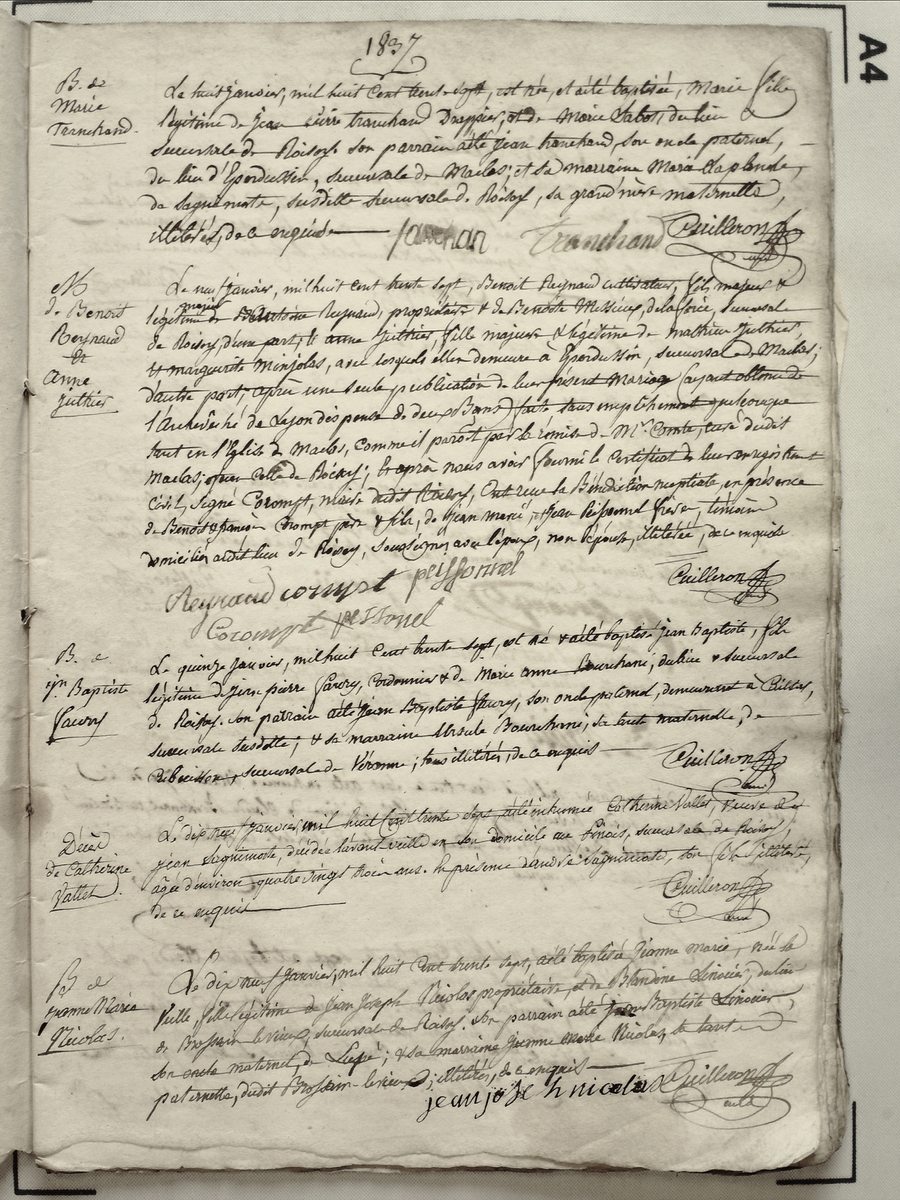 1837
A4
B. de
Marie
Tranchand.
Le huit janvier, mil huit cent trente sept, est née, et a été baptisée, Marie fille
légitime de Jean pierre tranchand Drappier, et de Marie Sabot, du lieu
succursale de Roisey. Son parrain a été jean tranchand, son oncle paternel,
du lieu d'Eperdussin, succursale de Maclas; et sa marraine Marie
de sagnemorte, susdite succursale de Roisey, sa grand mère maternelle,
illitérés, de ce enquis
Tranchand Cuilleron
M
de Benoit
Reynaud
et
Anne
juthier
Le neuf janvier, mil huit cent trente sept, Benoit Reynaud cultivateur, fils majeur &
légitime de Antoine Reynaud, propriétaire & de Benoite succursale
de Roisey, d'une part; & anne juthier, fille majeure & légitime de mathieu juthier,
& marguerite Minjolas, avec lesquels elle demeure à Eperdussin, succursale de Maclas;
d'autre part; après une seule publication de leur présent Mariage (ayant obtenu de
l'Archevêché de Lyon dispense de deux Bans) faite sans empêchement quelconque
tant en l'Eglise de Maclas, comme il paroit par la remise de Mr. Comte, curé dudit
Maclas; qu'en celle de Roisey; & après nous avoir fourni le certificat de leur enregistrement
civil, signé Corompt, maire dudit Roisey, ont reçu la Bénédiction nuptiale, en présence
de Benoit & Corompt père & fils, de jean marie, & jean peissonnel frères, témoins
domiciliés audit lieu de Roisey, soussignés avec l'époux, non l'épouse, illitérée, de ce enquise
Reynaud corompt peissonnel Cuilleron
Corompt pessonel
B. de
jn. Baptiste
faury
Le quinze janvier, mil huit cent trente sept, est né & a été baptisé jean Baptiste, fils
légitime de jean pierre faury, cordonnier & de Marie anne Bourchany, du lieu & succursale
de Roisey. Son parrain a été jean Baptiste faury, son oncle paternel, demeurant à
succursale susdite; & sa marraine Ursule Bourchany, sa tante maternelle, de
succursale de Véranne; tous illitérés, de ce enquis
Cuilleron
Décès
de Catherine
Vallet.
Le dix sept janvier, mil huit cent trente sept a été inhumée Catherine Vallet, veuve de
jean sagnimorte, décédée l'avant veille en son domicile au succursale de Roisey,
agée d'environ quatre vingt trois ans. En présence d'andré sagnimorte, son fils illitéré,
de ce enquis
Cuilleron
B de
jeanne Marie
Nicolas.
Le dix neuf janvier, mil huit cent trente sept, a été baptisée jeanne marie, née la
veille, fille légitime de jean joseph Nicolas propriétaire, et de Blandine Linossier, du lieu
de Brossin le vieux, succursale de Roisey. Son parrain a été jean Baptiste Linossier,
son oncle maternel, de Lupé; & sa marraine jeanne marie Nicolas, sa tante
paternelle, dudit Brossin le vieux; illitérés, de ce enquis
jean joseh nicolas Cuilleron
curé